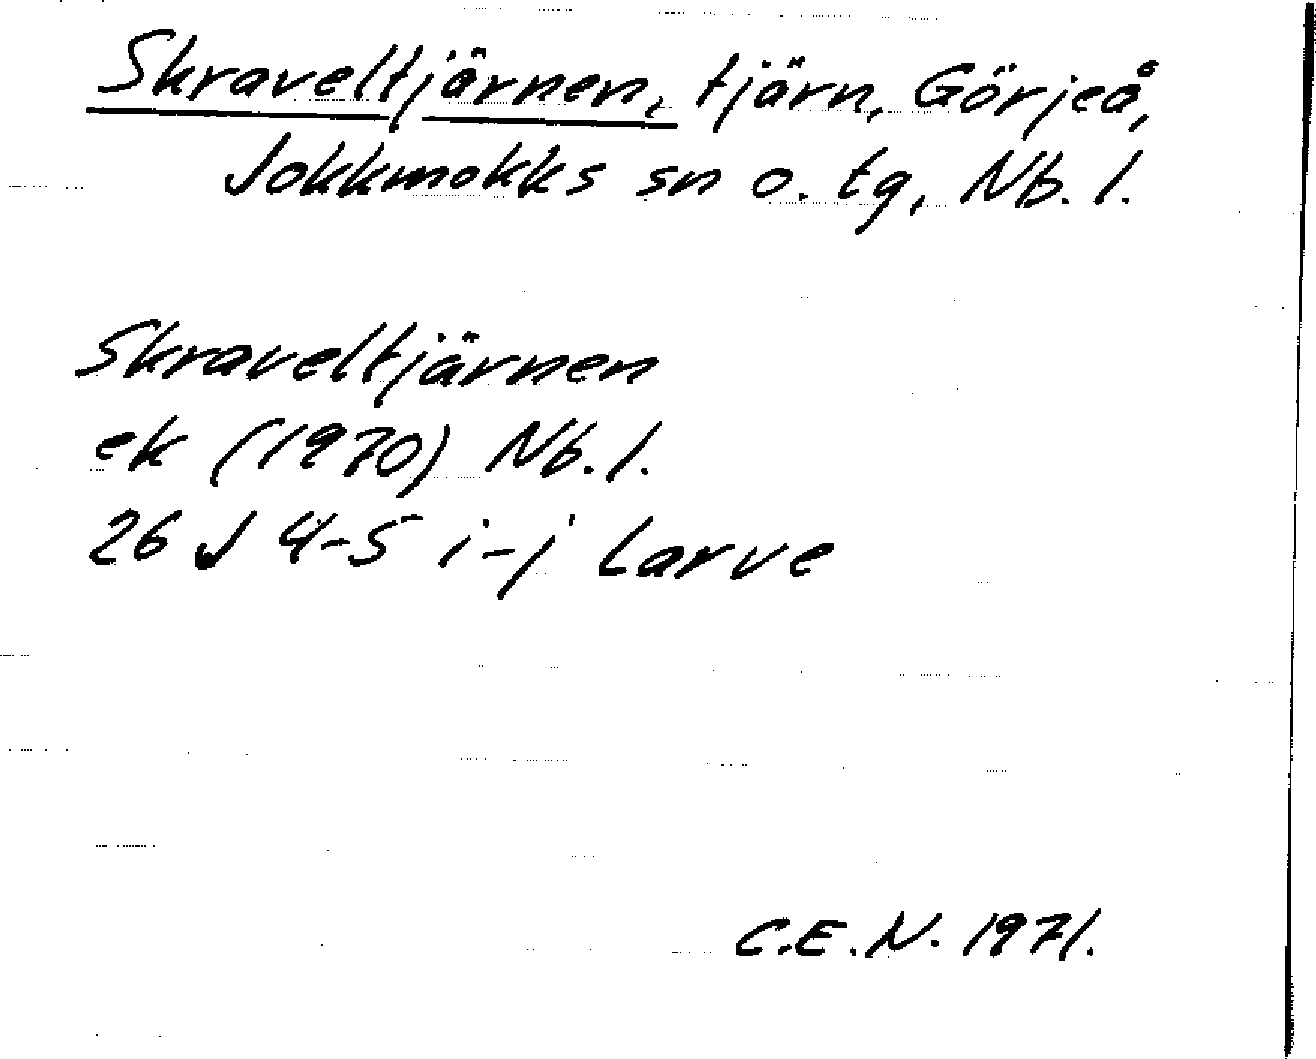 Skraveltjärnen, tjärn, Görjeå,
Jokkmokks sn o. tg, Nb. l.
Skraveltjärnen
ek (1970) Nb. l.
26 J 4-5 i-j Larve
C.E.N. 1971.